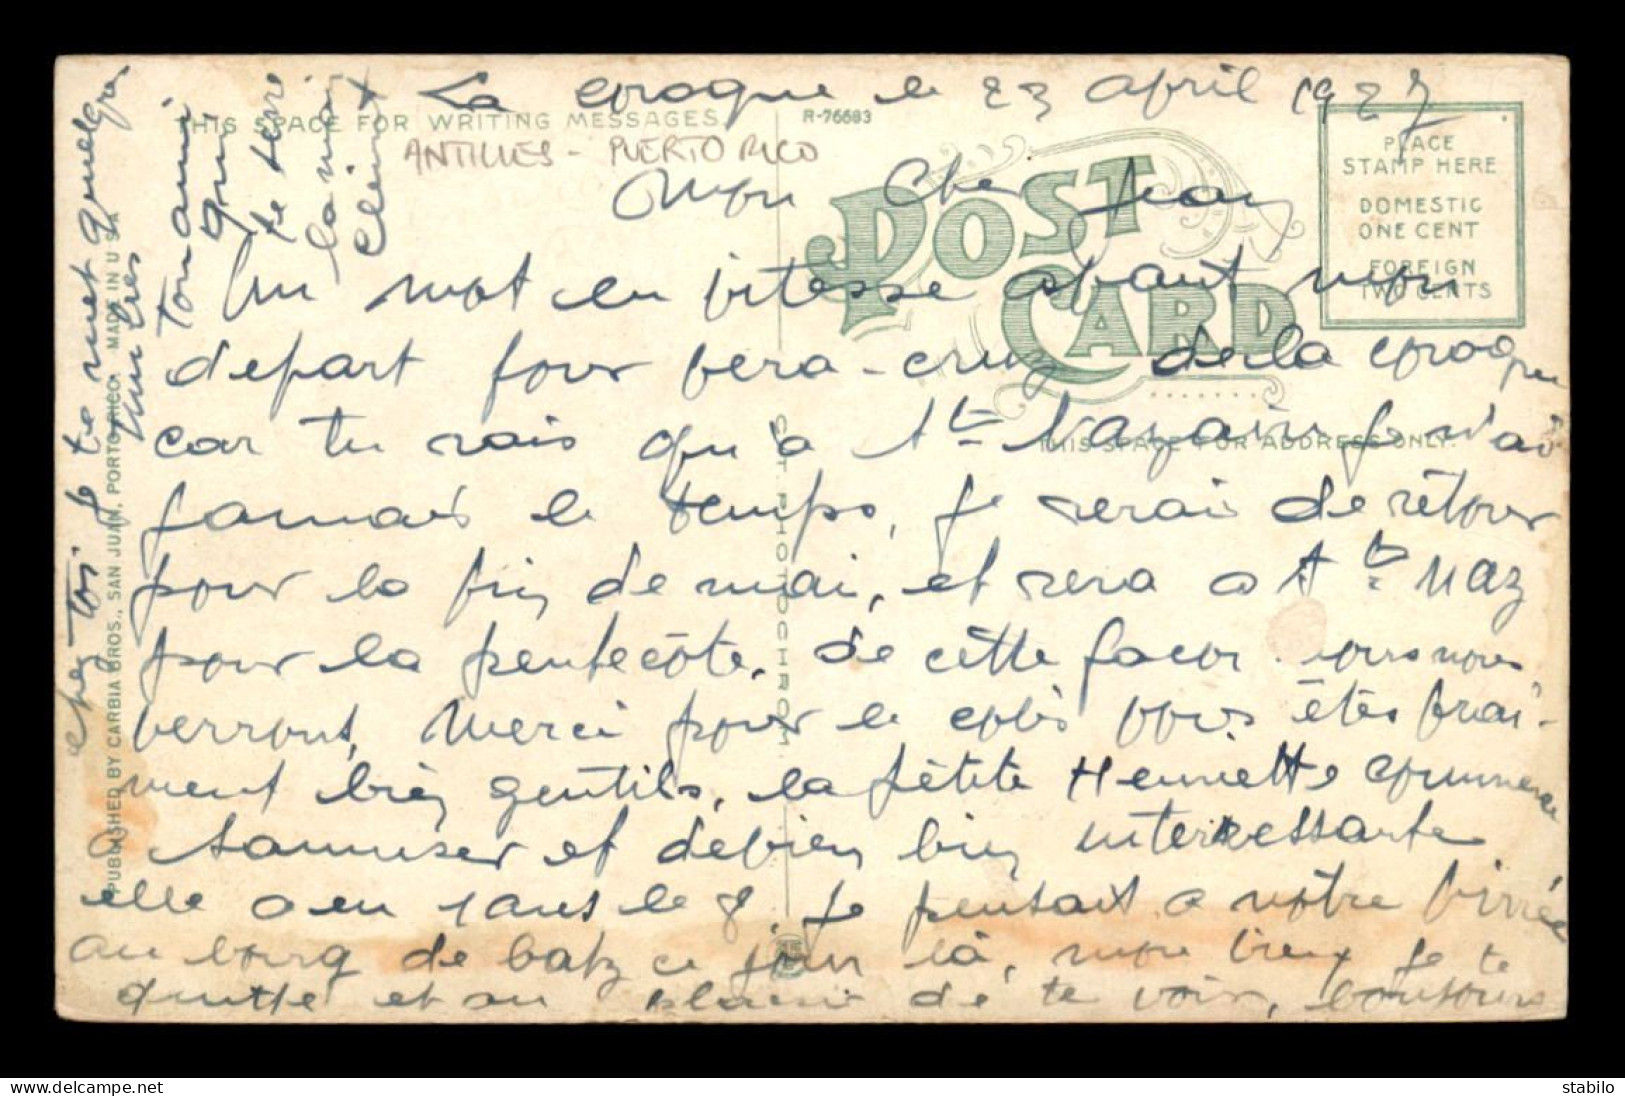 La coroque le 23 april 1927
THIS SPACE FOR WRITING MESSAGES
R-76683
ANTILLES - PUERTO RICO
Mon Cher Jean
POST CARD
PLACE
STAMP HERE
DOMESTIC
ONE CENT
FOREIGN
TWO CENTS
Un mot en vitesse avant mon
depart pour vera-cruz de la coroque
car tu sais qu'a Ste Nazaire je n'ai
THIS SPACE FOR ADDRESS ONLY.
jamais le temps, je serais de retour
pour la fin de mai, et sera a Ste Naz
pour la pentecôte, de cette facon nous nous
verrons, Merci pour le colis vous êtes vrai-
ment bien gentils, la petite Henriette commence
samuser et devien bien interessante
elle a eu 1 ans le 8 je pensait a nôtre virrée
au bourg de batz ce jour là, mon vieux je te
quitte et au plaisir de te voir, bonjours
chez toi je te met quelques
timbres
ton ami
qui
te serre
la main
Clement
C. T. PHOTOCHROM
PUBLISHED BY CARBIA BROS., SAN JUAN, PORTO RICO. MADE IN U S A
stabilo
www.delcampe.net